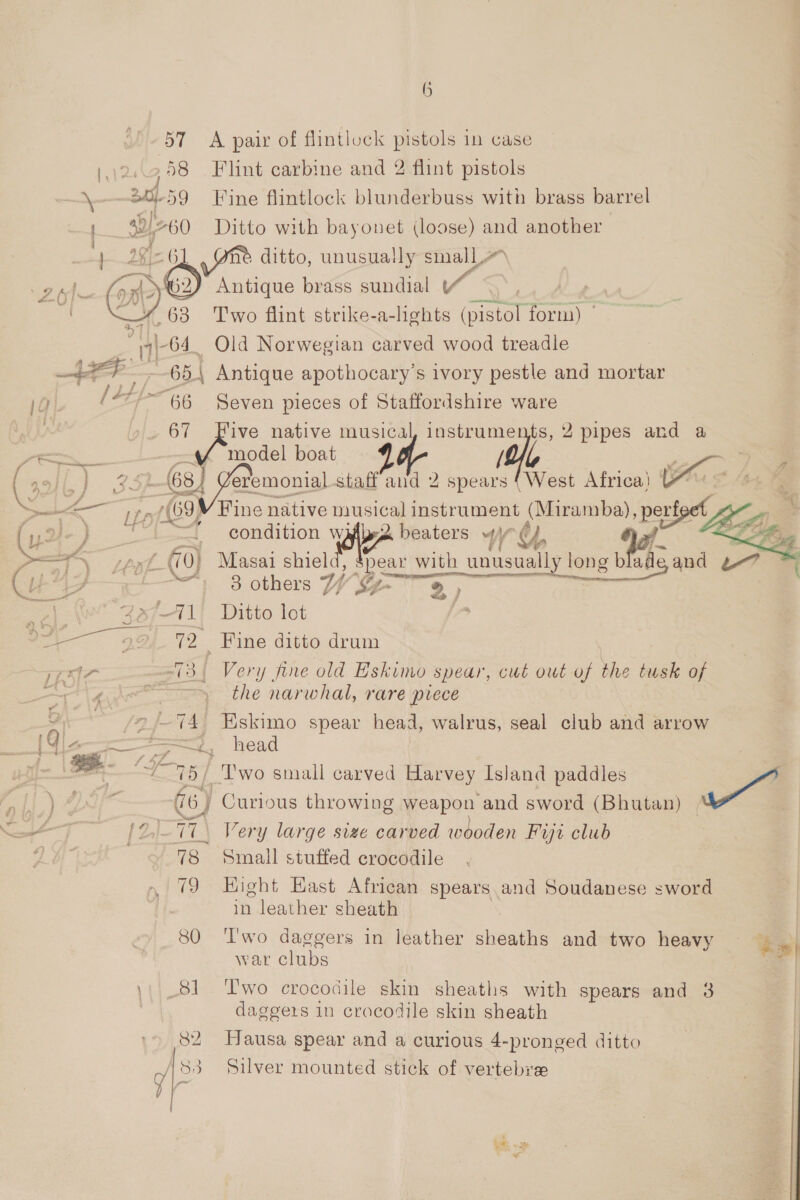 6
57 A pair of flintlock pistols in case
58 Flint carbine and 2 flint pistols
59 Fine flintlock blunderbuss with brass barrel
60 Ditto with bayonet (loose) and another
61 One ditto, unusually small
62 Antique brass sundial
63 Two flint strike-a-lights (pistol form)
64 Old Norwegian carved wood treadle
65 Antique apothocary's ivory pestle and mortar
66 Seven pieces of Staffordshire ware
67 Five native musical instruments, 2 pipes and a
model boat
68 Ceremonial staff and 2 spears (West Africa)
69 Fine native musical instrument (Miramba), perfect
condition beaters
70 Masai shield, spear with unusually long blade and
3 others
71 Ditto lot
72 Fine ditto drum
73 Very fine old Eskimo spear, cut out of the tusk of
the narwhal, rare piece
74 Eskimo spear head, walrus, seal club and arrow
head
75 Two small carved Harvey Island paddles
76 Curious throwing weapon and sword (Bhutan)
77 Very large size carved wooden Fiji club
78 Small stuffed crocodile
79 Eight East African spears and Soudanese sword
in leather sheath
80 Two daggers in leather sheaths and two heavy
war clubs
81 Two crocodile skin sheaths with spears and 3
daggers in crocodile skin sheath
82 Hausa spear and a curious 4-pronged ditto
83 Silver mounted stick of vertebræ